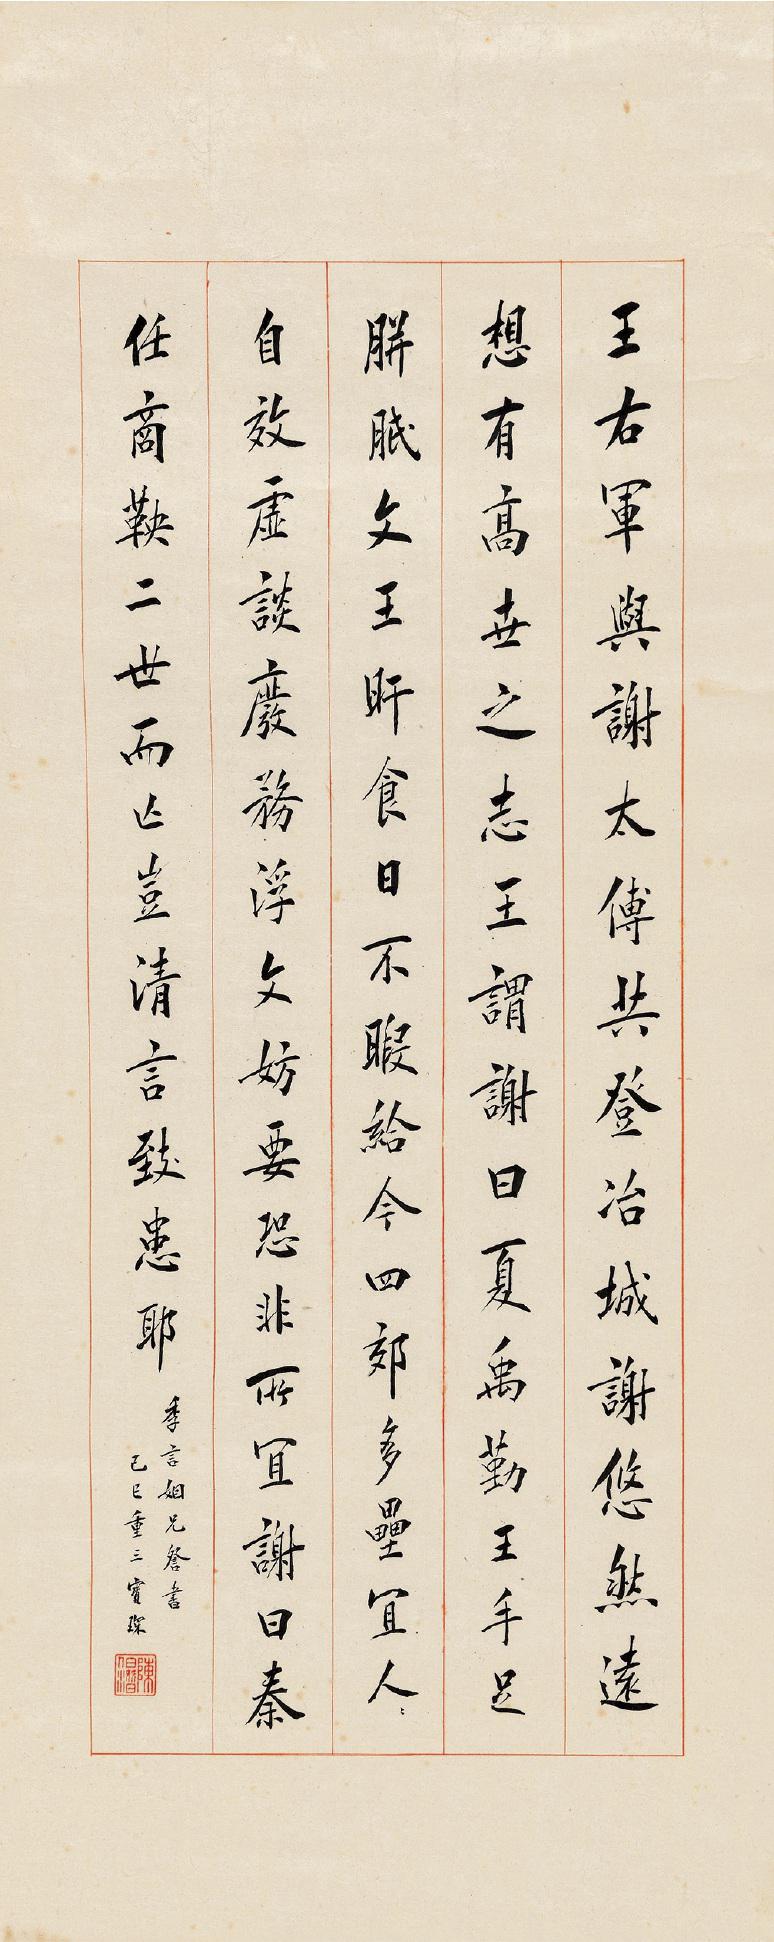 王右軍與謝太傅共登冶城謝悠然遠
想有高世之志王謂謝曰夏禹勤王手足
胼胝文王旰食日不暇給今四郊多壘宜人〻
自效虛談廢務浮文妨要恐非所宜謝曰秦
任商鞅二世而亡豈清言致患耶
季言姻兄詧書
己巳重三寶琛